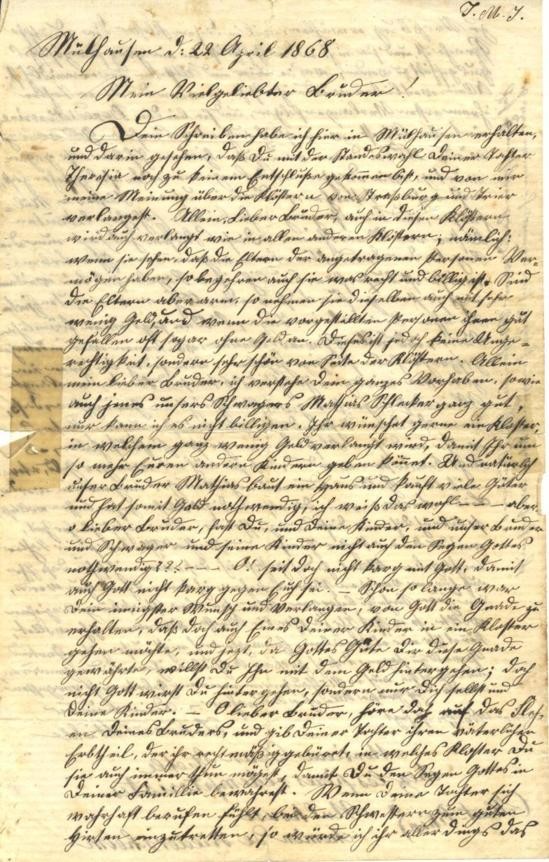 J. M. J.
Mülhausen d: 22 April 1868
Mein Vielgeliebter Bruder!
Dein Schreiben habe ich hier in Mülhausen erhalten,
und darin gesehen, daß Du mit der Standeswahl Deiner Tochter
Theresia noch zu keinem Entschluße gekommen bist, und von mir
meine Meinung über die Klöstern von Straßburg und Trier
verlangest. Allein, lieber Bruder, auch in diesen Klöstern
wird auch verlangt wie in allen anderen Klöstern; nämlich:
wenn sie sehen, daß die Eltern der angetragenen Personen Ver-
mögen haben, so begehren auch sie was recht und billig ist. Sind
die Eltern aber arm, so nehmen sie dieselben auch mit sehr
wenig Geld, und wenn die vorgestellten Personen ihnen gut
gefallen oft sogar ohne Geld an. Dieses ist jedoch keine Unge-
rechtigkeit, sondern sehr schön von Seite der Klöster. Allein
mein lieber Bruder, ich verstehe Dein ganzes Vorhaben, sowie
auch jenes unsers Schwagers Mathias ganz gut,
nur kann ich es nicht billigen. Ihr wünschet gerne ein Kloster,
in welchem ganz wenig Geld verlangt wird, damit Ihr um
so mehr Euren andern Kindern geben könnet. Und natürlich
Bruder Mathias baut ein Haus und kauft viele Güter
und hat somit Geld nothwendig, ich weiß das wohl — — aber
o lieber Bruder, hast Du, und Deine Kinder, und unser Bruder
und Schwager und seine Kinder nicht auch den Segen Gottes
nothwendig??. — — O! seid doch nicht karg mit Gott, damit
auch Gott nicht karg gegen Euch sei. — Schon so lange war
Dein innigster Wunsch und Verlangen, von Gott die Gnade zu
erhalten, daß doch auch Eines Deiner Kinder in ein Kloster
gehen möchte, und jezt, da Gottes Güte Dir diese Gnade
gewährte, willst Du Ihn mit dem Geld hintergehen; doch
nicht Gott wirst Du hintergehen, sondern nur Dich selbst und
Deine Kinder. — O lieber Bruder, höre doch auf das Fleh-
en Deines Bruders, und gib Deiner Tochter ihren väterlichen
Erbtheil, der ihr rechtmäßig gebüret, in welches Kloster Du
sie auch immer thun mögest, damit Du den Segen Gottes in
Deiner Famillie bewahrest. Wenn Deine Tochter sich
wahrhaft berufen fühlt, bei den Schwestern zum guten
Hirten einzutretten, so würde ich ihr allerdings das